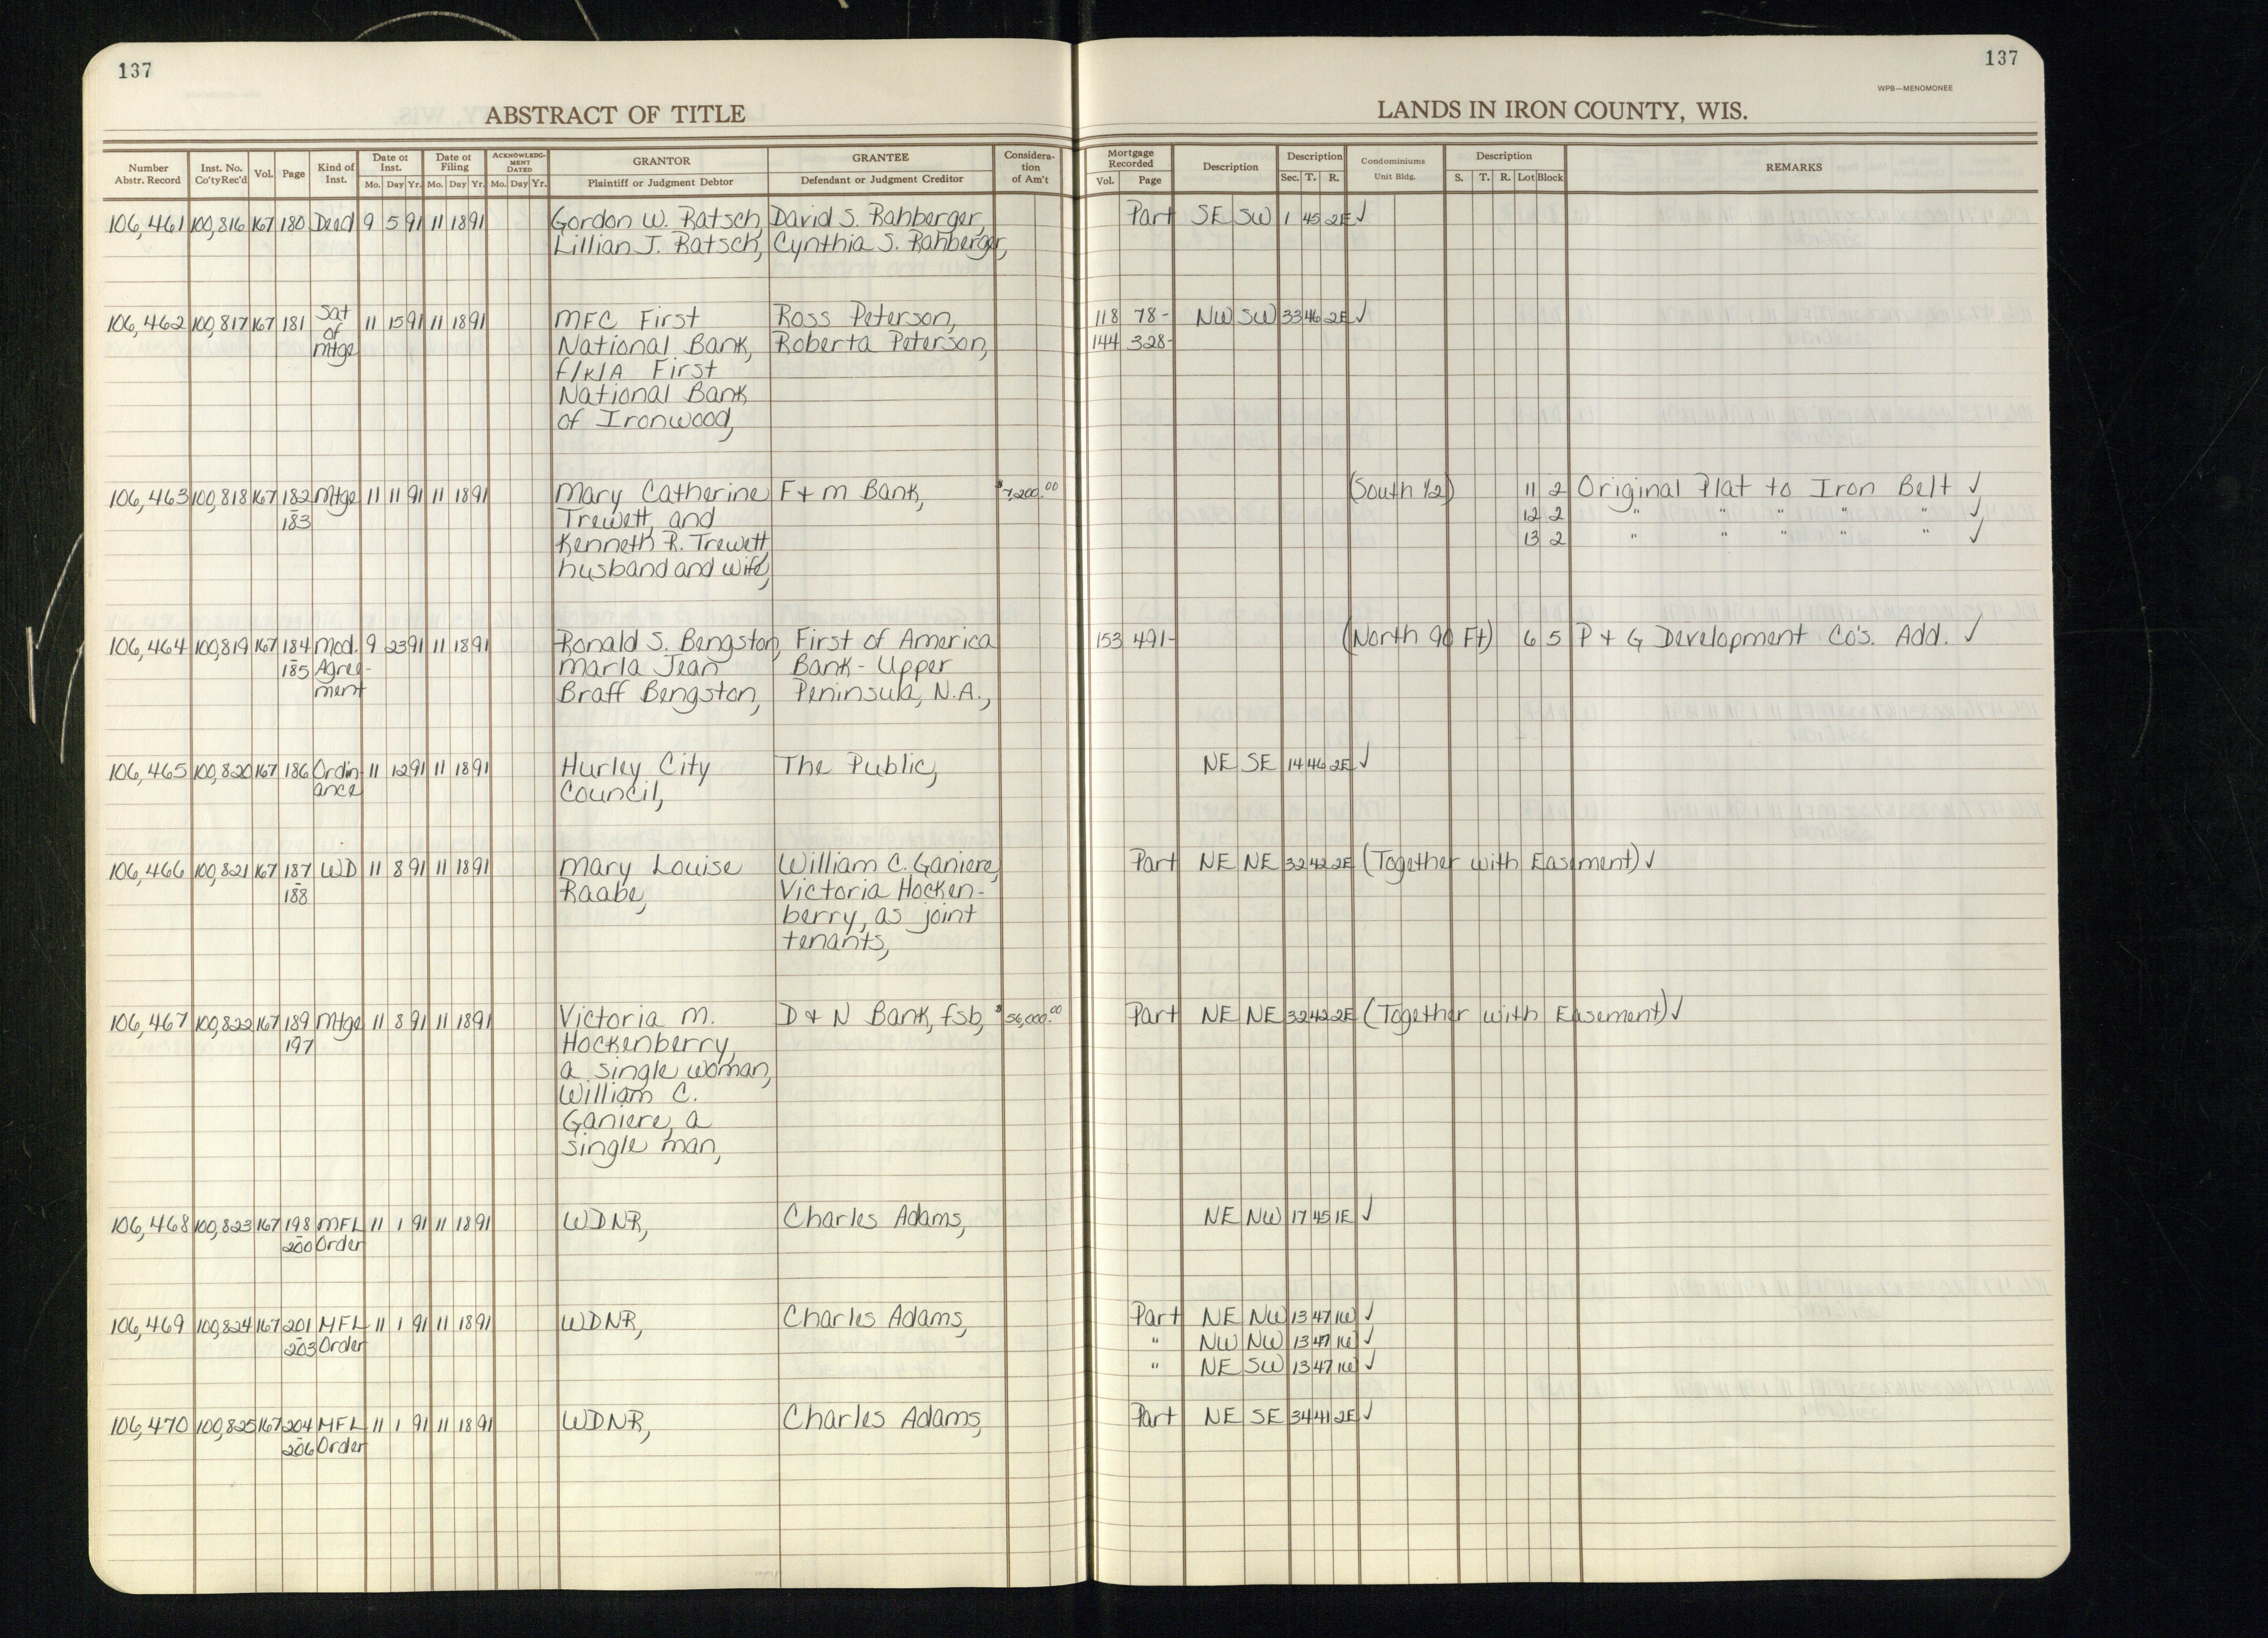 137
137
WPB—MENOMONEE
ABSTRACT OF TITLE
LANDS IN IRON COUNTY, WIS.
Number Abstr. Record | Inst. No. Co'ty Rec'd | Vol. | Page | Kind of Inst. | Date of Inst. Mo. Day Yr. | Date of Filing Mo. Day Yr. | ACKNOWLEDGMENT DATED Mo. Day Yr. | GRANTOR Plaintiff or Judgment Debtor | GRANTEE Defendant or Judgment Creditor | Consideration of Am't | Mortgage Recorded Vol. Page | Description | Description Sec. T. R. | Condominiums Unit Bldg. | Description S. T. R. Lot Block | REMARKS
106,461 100,816 167 180 Deed 9 5 91 11 18 91 Gordon W. Ratsch, David S. Rahberger, Part SE SW 1 45 2E ✓
Lillian J. Ratsch, Cynthia S. Rahberger,
106,462 100,817 167 181 Sat 11 15 91 11 18 91 MFC First Ross Peterson, 118 78- NW SW 33 46 2E ✓
of
mtge National Bank, Roberta Peterson, 144 328-
f/k/A First
National Bank
of Ironwood,
106,463 100,818 167 182 Mtge 11 11 91 11 18 91 Mary Catherine F & M Bank, $7,200.00 (South 1/2) 11 2 Original Plat to Iron Belt ✓
- 183 Trewett, and 12 2 " " " " " ✓
Kenneth R. Trewett, 13 2 " " " " " ✓
husband and wife,
106,464 100,819 167 184 Mod. 9 23 91 11 18 91 Ronald S. Bengston, First of America 153 491- (North 90 Ft) 6 5 P & G Development Co's. Add. ✓
- 185 Agree- Marla Jean Bank - Upper
ment Braff Bengston, Peninsula, N.A.,
106,465 100,820 167 186 Ordin 11 12 91 11 18 91 Hurley City The Public, NE SE 14 46 2E ✓
ance Council,
106,466 100,821 167 187 WD 11 8 91 11 18 91 Mary Louise William C. Ganiere, Part NE NE 32 42 2E (Together with Easement) ✓
- 188 Raabe, Victoria Hocken-
berry, as joint
tenants,
106,467 100,822 167 189 Mtge 11 8 91 11 18 91 Victoria M. D & N Bank, fsb, $56,000.00 Part NE NE 32 42 2E (Together with Easement) ✓
197 Hockenberry,
a single woman,
William C.
Ganiere, a
single man,
106,468 100,823 167 198 MFL 11 1 91 11 18 91 WDNR, Charles Adams, NE NW 17 45 1E ✓
- 200 Order
106,469 100,824 167 201 MFL 11 1 91 11 18 91 WDNR, Charles Adams, Part NE NW 13 47 1W ✓
- 203 Order " NW NW 13 47 1W ✓
" NE SW 13 47 1W ✓
106,470 100,825 167 204 MFL 11 1 91 11 18 91 WDNR, Charles Adams, Part NE SE 34 41 2E ✓
- 206 Order